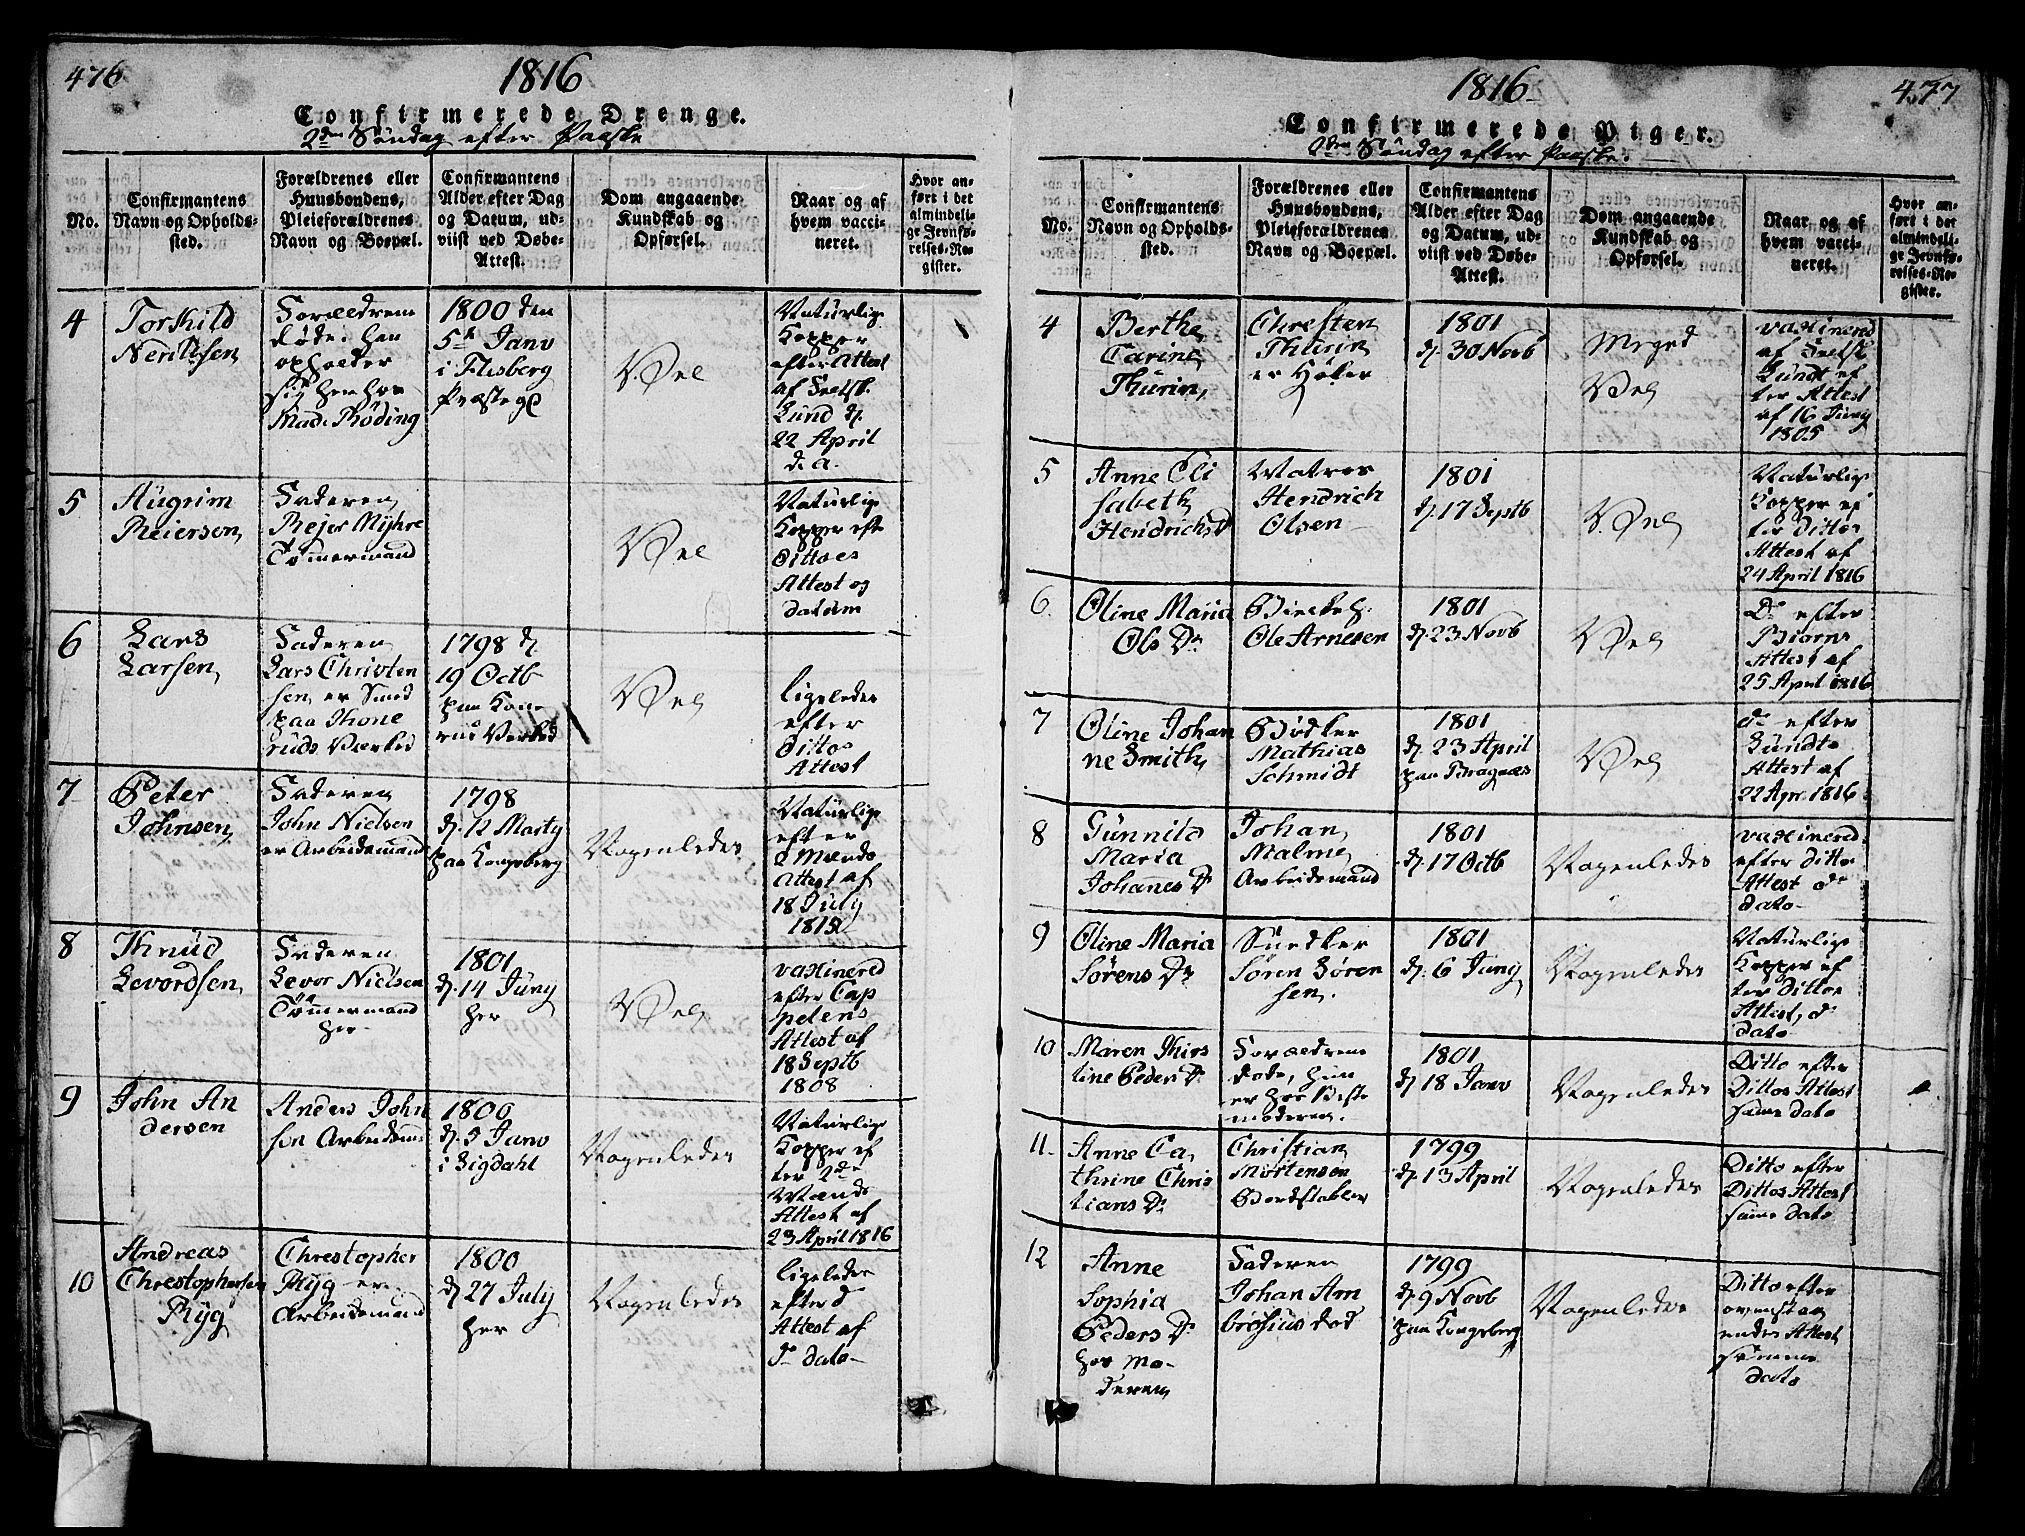 476
1816
Confirmerede Drenge.
2den Søndag efter Paaske
No.
Confirmantens
Navn og Opholds-
sted.
Forældrenes eller
Huusbondens,
Pleieforældrenes
Navn og Boepæl.
Confirmantens
Alder efter Dag
og Datum, ud-
viist ved Døbe-
Attest.
Dom angaaende
Kundskab og
Opførsel.
Naar og af
hvem vacci-
neret.
Hvor an-
ført i det
almindeli-
ge Jevnfø-
relses-Re-
gister.
4
Torskild
Nerilsen
Forældrene
døde. han
opholder
sig her hos
Mad. Røding
1800 den
5te Janv
i Flesberg
Præsteg
Vel
Naturlige
Kopper
efter Attest
af Feltsk.
Lund d.
22 April
d. a.
5
Augrim
Reiersen
Faderen
Rejer Myhre
Tømmermand
Vel
Naturlige
Kopper efter
Dittoes
Attest og
datum
6
Lars
Larsen
Faderen
Lars Christen
sen er Smed
paa Thone
ruds Værket
1798 d
19 Octb
paa Kone
rud Verked
Vel
ligeledes
efter
Dittos
Attest
7
Peter
Johnsen
Faderen
John Nielsen
er Arbeidsmand
1798
d. 12 Marty
paa Kongsberg
Nogenledes
Naturlige
efter
d Mænds
Attest af
18 July
8
Knud
Levordsen
Faderen
Levor Nielsen
Tømmermand
her
1801
d. 14 Juny
her
Vel
vaxinered
efter Cap
pelens
Attest af
18 Septb
1808
9
John An
dersen
Anders John
sen Arbeidsm
1800
d. 5 Janv
i Sigdahl
Nogenledes
Naturlige
Kopper ef
ter 2de
Mænds
Attest af
23 April 1816
10
Andreas
Chrestophersen
Ryg
Chrestopher
Ryg er
Arbeidsmand
1800
d 27 July
her
Nogenledes
ligeledes
efter d
Attest af
d dato
1816
477
Confirmerede Piger.
2den Søndag efter Paaske.
No.
Confirmantens
Navn og Opholds-
sted.
Forældrenes eller
Huusbondens,
Pleieforældrenes
Navn og Boepæl.
Confirmantens
Alder efter Dag
og Datum, ud-
viist ved Døbe-
Attest.
Dom angaaende
Kundskab og
Opførsel.
Naar og af
hvem vacci-
neret.
Hvor an-
ført i det
almindeli-
ge Jevnfø-
relses-Re-
gister.
4
Berthe
Carine
Thurin
Chresten
Thurin
er Høker
1801
d. 30 Novb
Meget
Vel
vaxinered
af Feltsk
Lundt ef
ter Attest
af 16 Juny
1805
5
Anne Eli
sabeth
Hendrichs D
Matros
Hendrich
Olsen
1801
d. 17 Septb
Vel
Naturlige
Kopper ef
ter Dittos
Attest af
24 April 1816
6
Oline Maria
Ols Dr
Ole Arnesen
1801
d. 23 Novb
Vel
Do efter
Biørns
Attest af
25 April 1816
7
Oline Johan
ne Smith
Bødker
Mathias
Schmidt
1801
d. 23 April
paa Bragnæs
Vel
do efter
Lundts
Attest af
22 Apr. 1816
8
Gunnild
Maria
Johannes Dr
Johan
Malme
Arbeidsmand
1801
d. 17 Octb
Nogenledes
vaxinered
efter ditto
Attest do
dato
9
Oline Maria
Sørens Dr
Snedker
Søren Søren
sen.
1801
d. 6 Juny
Nogenledes
Naturlige
Kopper ef
ter dittos
Attest, do
dato
10
Maren Kirs
tine Peders Dr
Forældrene
døde, hun
er hos Beste
moderen.
1801
d 18 Janv
Nogenledes
Ditto efter
Dittos Attest
samme dato
11
Anne Ca
thrine Chris
tians Dr
Christian
Mortensen
Bordstabler
1799
d. 13 April
Nogenledes
Ditto efter
Dittos Attest
samme dato
12
Anne
Sophia
Peders Dr
hos Mo-
deren
Faderen
Johan Am
brosius død
1799
d. 9 Novb
paa Kongsberg
Nogenledes
Ditto efter
ovenstaa
endes Attest
samme
dato